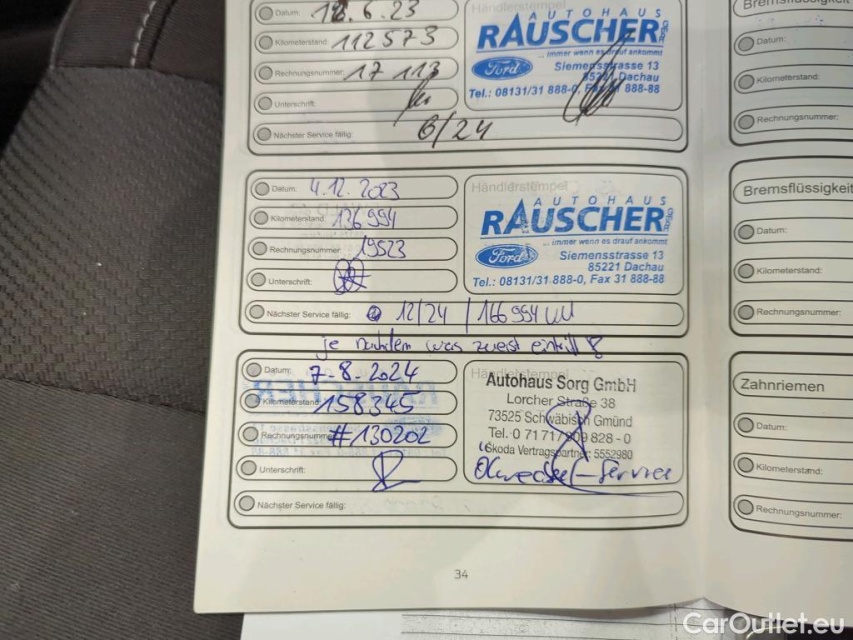 Datum: 12.6.23
Händlerstempel
Kilometerstand: 112573
Rechnungsnummer: 17 113
Unterschrift:
Nächster Service fällig: 6/24
AUTOHAUS
RAUSCHER
... immer wenn es drauf ankommt
Ford
Siemensstrasse 13
85221 Dachau
Tel.: 08131/31 888-0, Fax 31 888-88
Datum: 4.12.2023
Händlerstempel
Kilometerstand: 136994
Rechnungsnummer: 19523
Unterschrift:
Nächster Service fällig: 12/24 / 166994
AUTOHAUS
RAUSCHER
... immer wenn es drauf ankommt
Ford
Siemensstrasse 13
85221 Dachau
Tel.: 08131/31 888-0, Fax 31 888-88
je nachdem was zuerst eintrifft
Datum: 7.8.2024
Händlerstempel
Kilometerstand: 158345
Rechnungsnummer: #130202
Unterschrift:
Nächster Service fällig:
Autohaus Sorg GmbH
Lorcher Straße 38
73525 Schwäbisch Gmünd
Tel. 0 71 71 / 909 828 - 0
Skoda Vertragspartner: 5552980
Ölwechsel-Service
34
Bremsflüssigkeit
Datum:
Kilometerstand:
Rechnungsnummer:
Bremsflüssigkeit
Datum:
Kilometerstand:
Rechnungsnummer:
Zahnriemen
Datum:
Kilometerstand:
Rechnungsnummer:
CarOutlet.eu